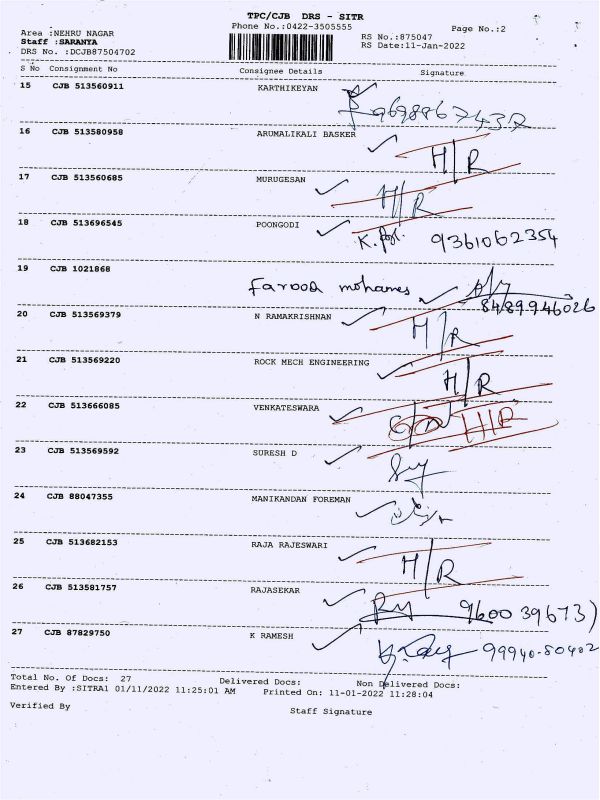 TPC/CJB DRS - SITR
Phone No.:0422-3505555
Page No.:2
Area :NEHRU NAGAR
Staff :SARANYA
DRS No. :DCJB87504702
RS No.:875047
RS Date:11-Jan-2022
S No Consignment No Consignee Details Signature
15 CJB 513560911 KARTHIKEYAN
9698867437
16 CJB 513580958 ARUMALIKALI BASKER
H/R
17 CJB 513560685 MURUGESAN
H/R
18 CJB 513696545 POONGODI
9361062354
19 CJB 1021868
Farood mohames
8489946026
20 CJB 513569379 N RAMAKRISHNAN
H/R
21 CJB 513569220 ROCK MECH ENGINEERING
H/R
22 CJB 513666085 VENKATESWARA
H/R
23 CJB 513569592 SURESH D
24 CJB 88047355 MANIKANDAN FOREMAN
25 CJB 513682153 RAJA RAJESWARI
H/R
26 CJB 513581757 RAJASEKAR
27 CJB 87829750 K RAMESH
99940-80402
Total No. Of Docs: 27 Delivered Docs: Non Delivered Docs:
Entered By :SITRA1 01/11/2022 11:25:01 AM Printed On: 11-01-2022 11:28:04
Verified By Staff Signature